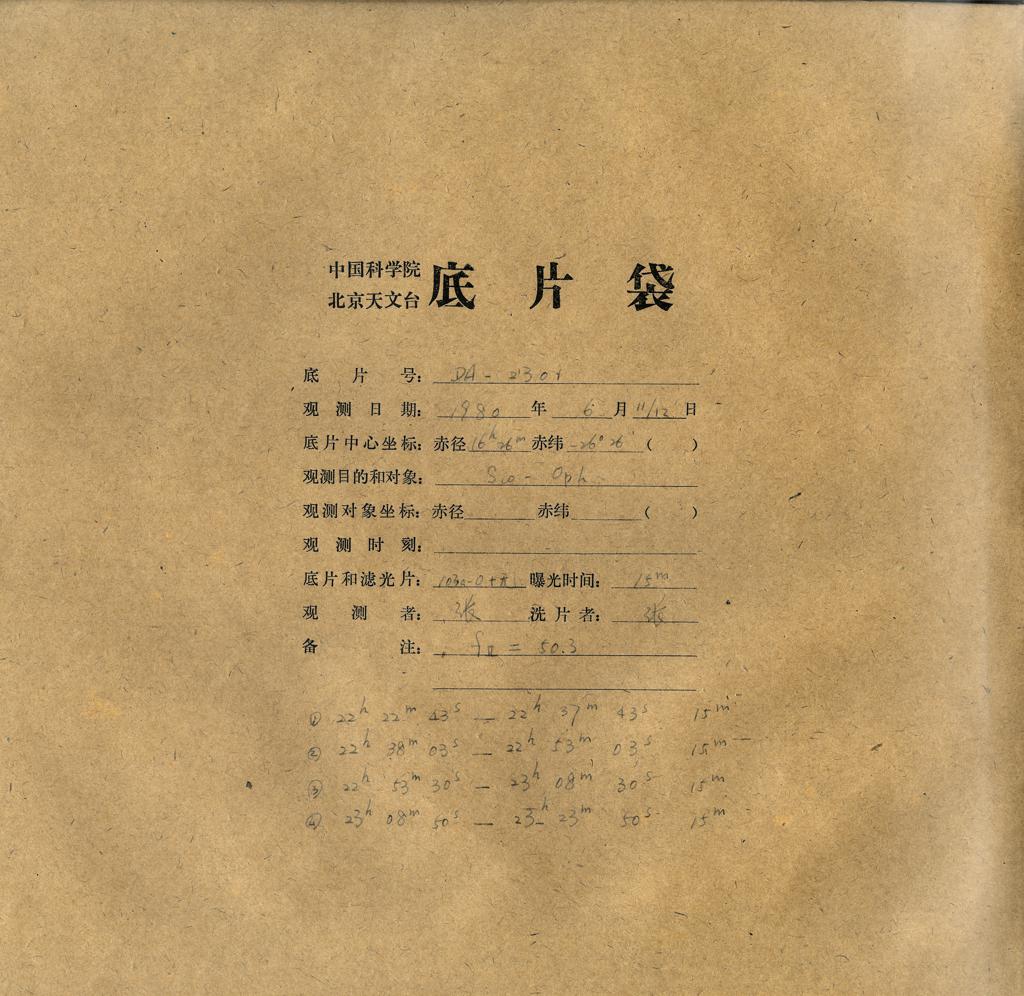 中国科学院
北京天文台 底片袋
底片号: DA-2301
观测日期: 1980年6月11/12日
底片中心坐标: 赤径 16ʰ26ᵐ 赤纬 -26°26′ ( )
观测目的和对象: Sco - Oph
观测对象坐标: 赤径 赤纬 ( )
观测时刻:
底片和滤光片: 103a-O+无 曝光时间: 15ᵐ
观测者: 张 洗片者: 张
备注: f = 50.3
① 22ʰ 22ᵐ 43ˢ — 22ʰ 37ᵐ 43ˢ 15ᵐ
② 22ʰ 38ᵐ 03ˢ — 22ʰ 53ᵐ 03ˢ 15ᵐ
③ 22ʰ 53ᵐ 30ˢ — 23ʰ 08ᵐ 30ˢ 15ᵐ
④ 23ʰ 08ᵐ 50ˢ — 23ʰ 23ᵐ 50ˢ 15ᵐ